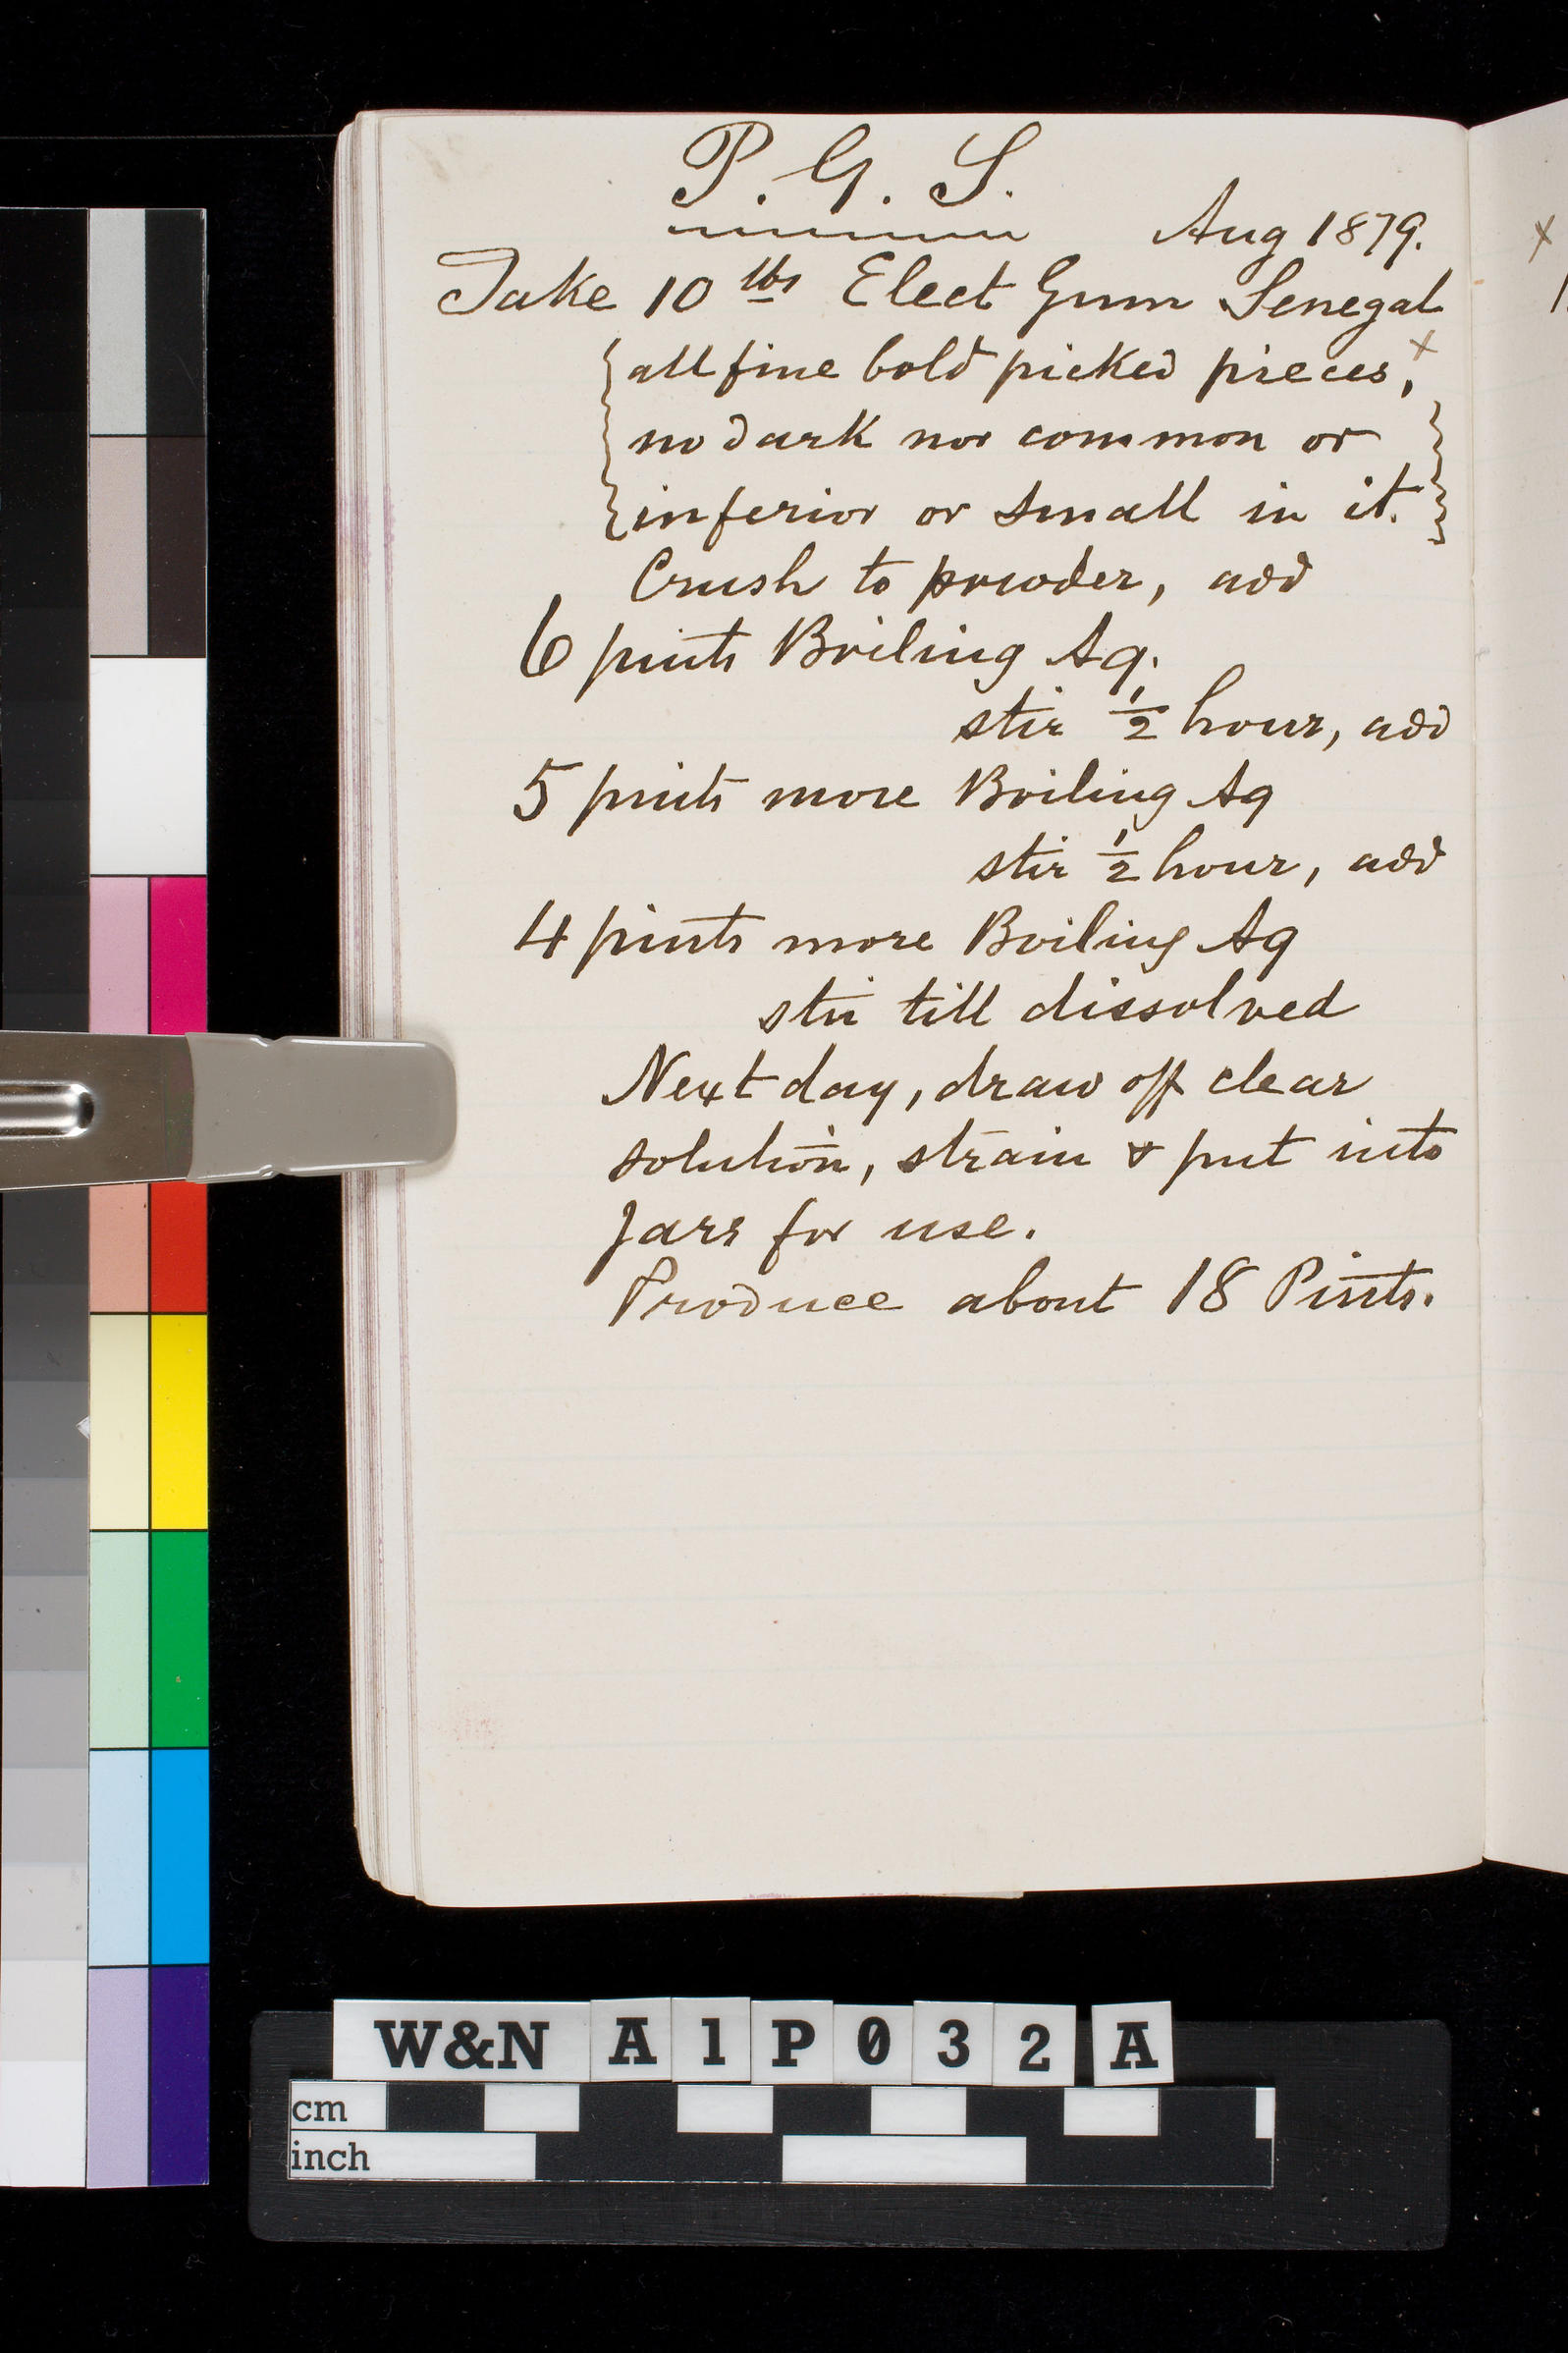 P. G. S.
Aug 1879.
Take 10 lbs Elect Gum Senegal
all fine bold picked pieces, x
no dark nor common or
inferior or small in it.
Crush to powder, add
6 pints Boiling Aq.
stir 1/2 hour, add
5 pints more Boiling Aq
stir 1/2 hour, add
4 pints more Boiling Aq
stir till dissolved
Next day, draw off clear
solution, strain & put into
Jars for use.
Produce about 18 Pints.
x
W&N A1P032A
cm
inch